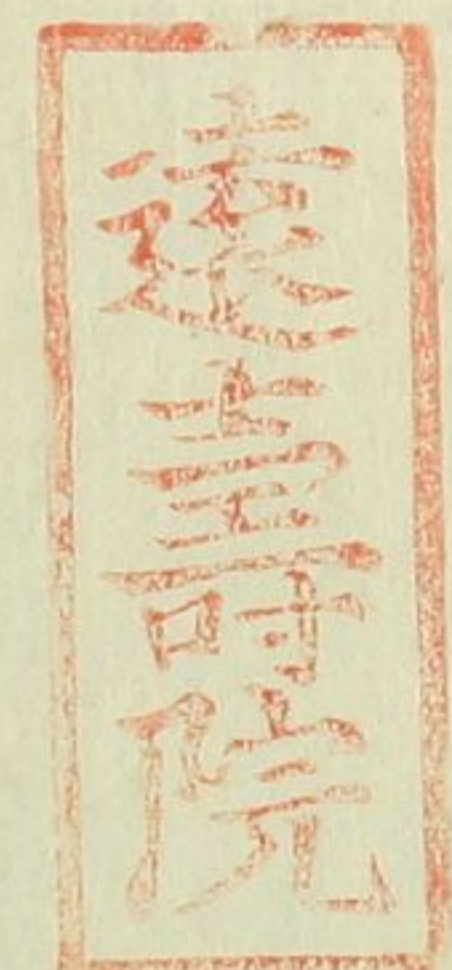 遠壽院